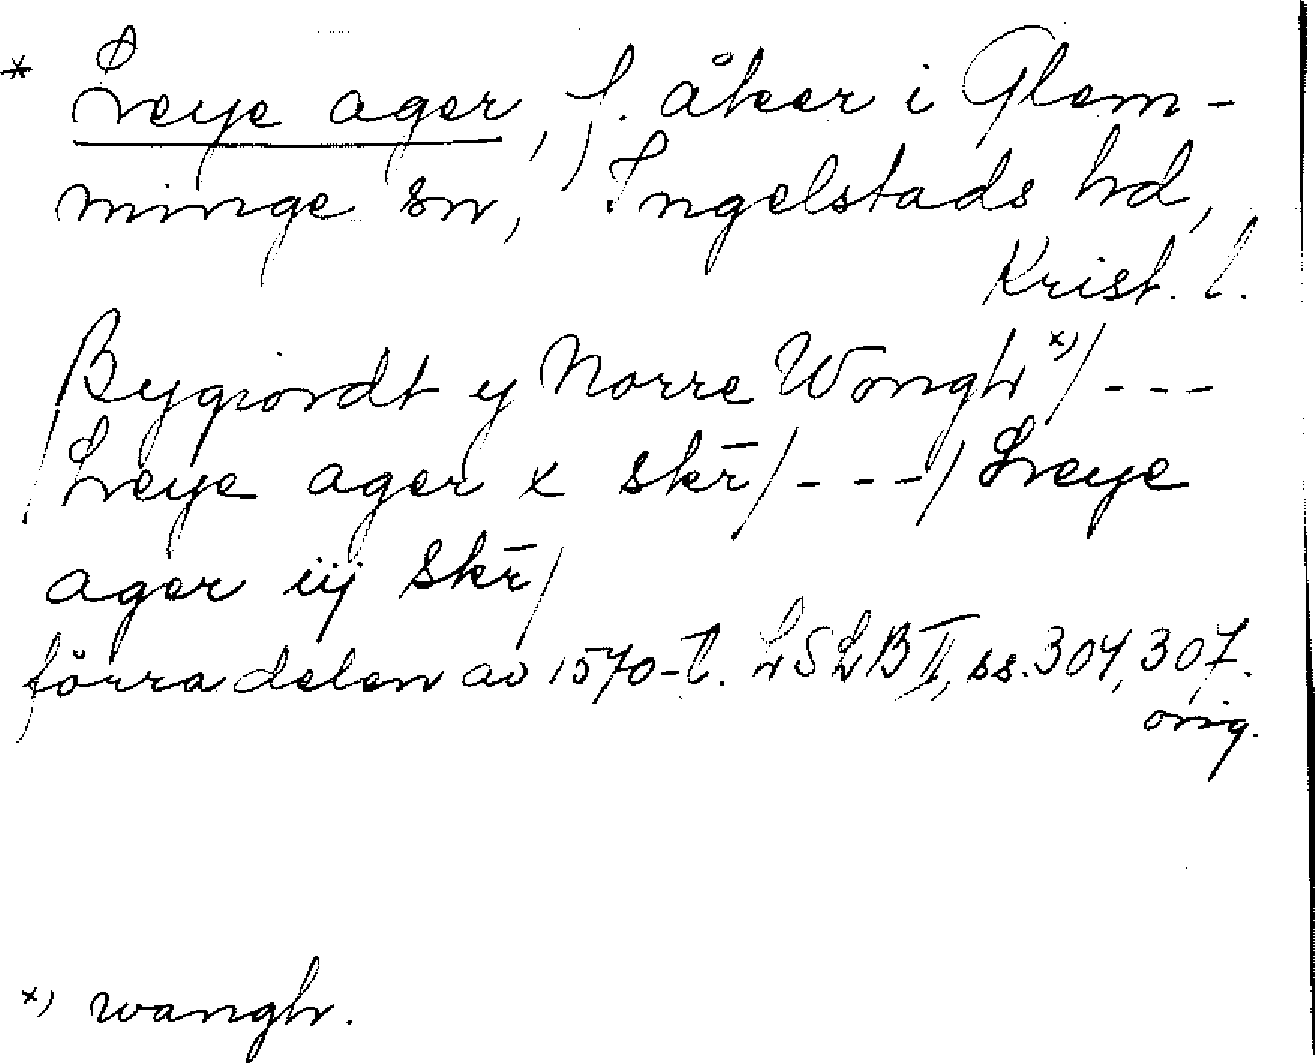 * Leye ager, f. åker i Glem-
minge sn, Ingelstads hd,
Krist. l.
Bygiordt y Norre Wongh x)/ ---
/ Leye ager x skr̄/ ---/ Leye
ager iij Skr̄/
förra delen av 1570-t. LSLB II, ss. 304, 307.
orig.
x) wangh.